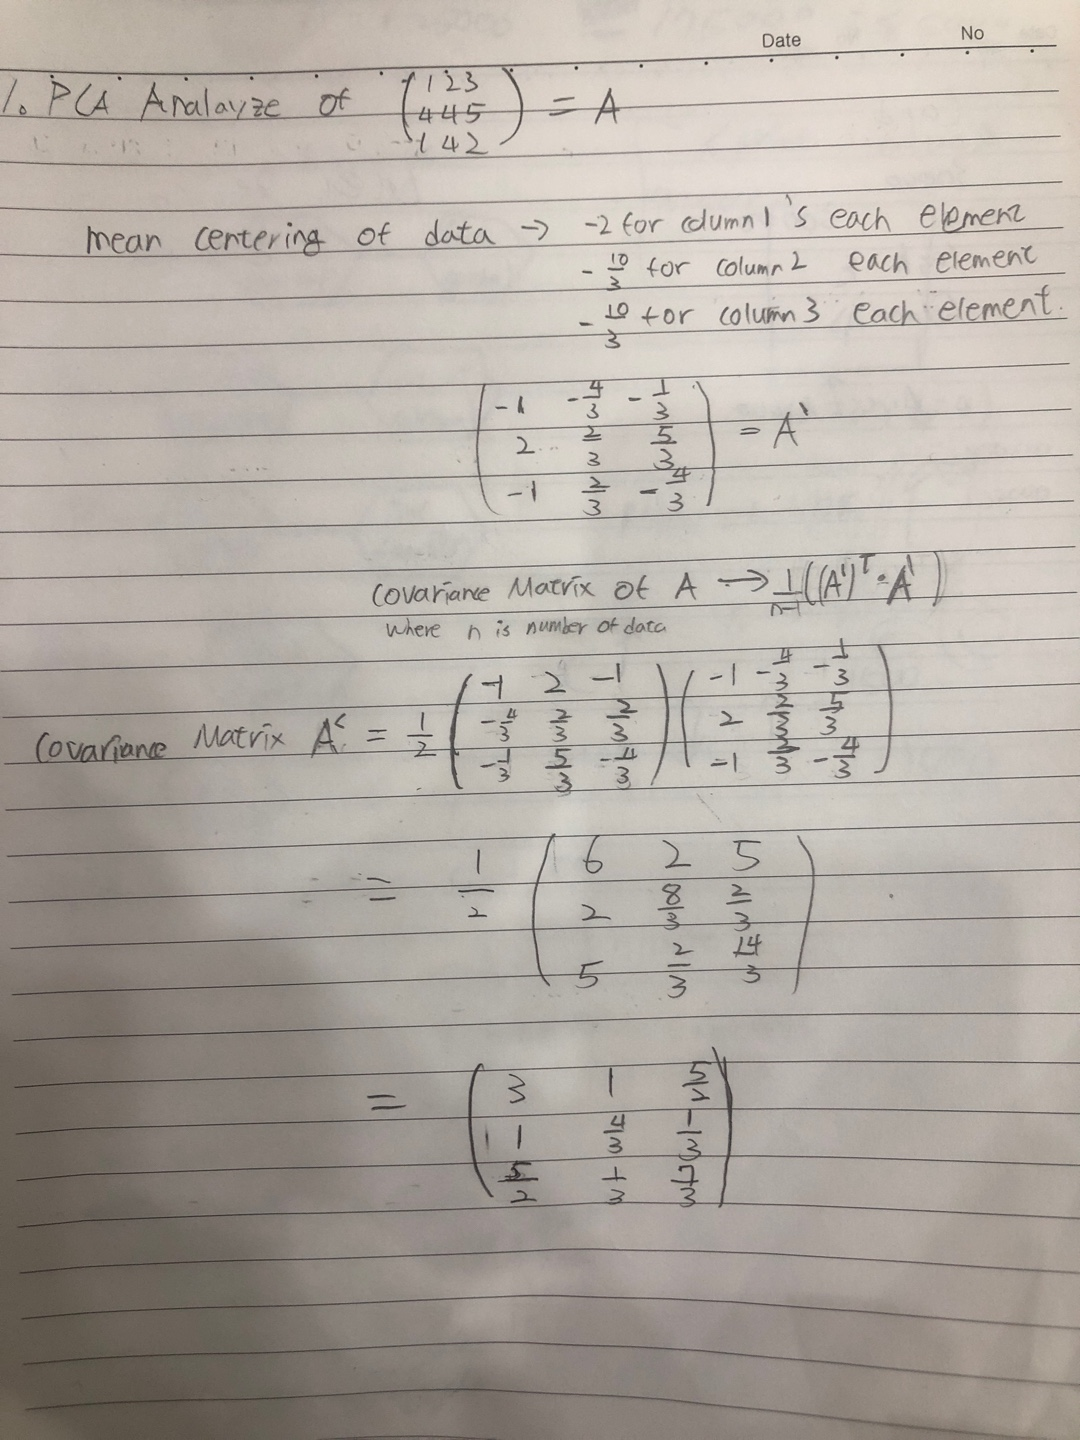 Date No
1. PCA Analayze of (1 2 3
4 4 5
1 4 2) = A
mean centering of data → -2 for column 1's each element
- 10/3 for column 2 each element
- 10/3 for column 3 each element.
(-1 -4/3 -1/3
2 2/3 5/3
-1 2/3 -4/3) = A'
Covariance Matrix of A → 1/(n-1) ((A')^T · A')
where n is number of data
Covariance Matrix A^c = 1/2 (-1 2 -1
-4/3 2/3 2/3
-1/3 5/3 -4/3) (-1 -4/3 -1/3
2 2/3 5/3
-1 2/3 -4/3)
= 1/2 (6 2 5
2 8/3 2/3
5 2/3 14/3)
= (3 1 5/2
1 4/3 1/3
5/2 1/3 7/3)